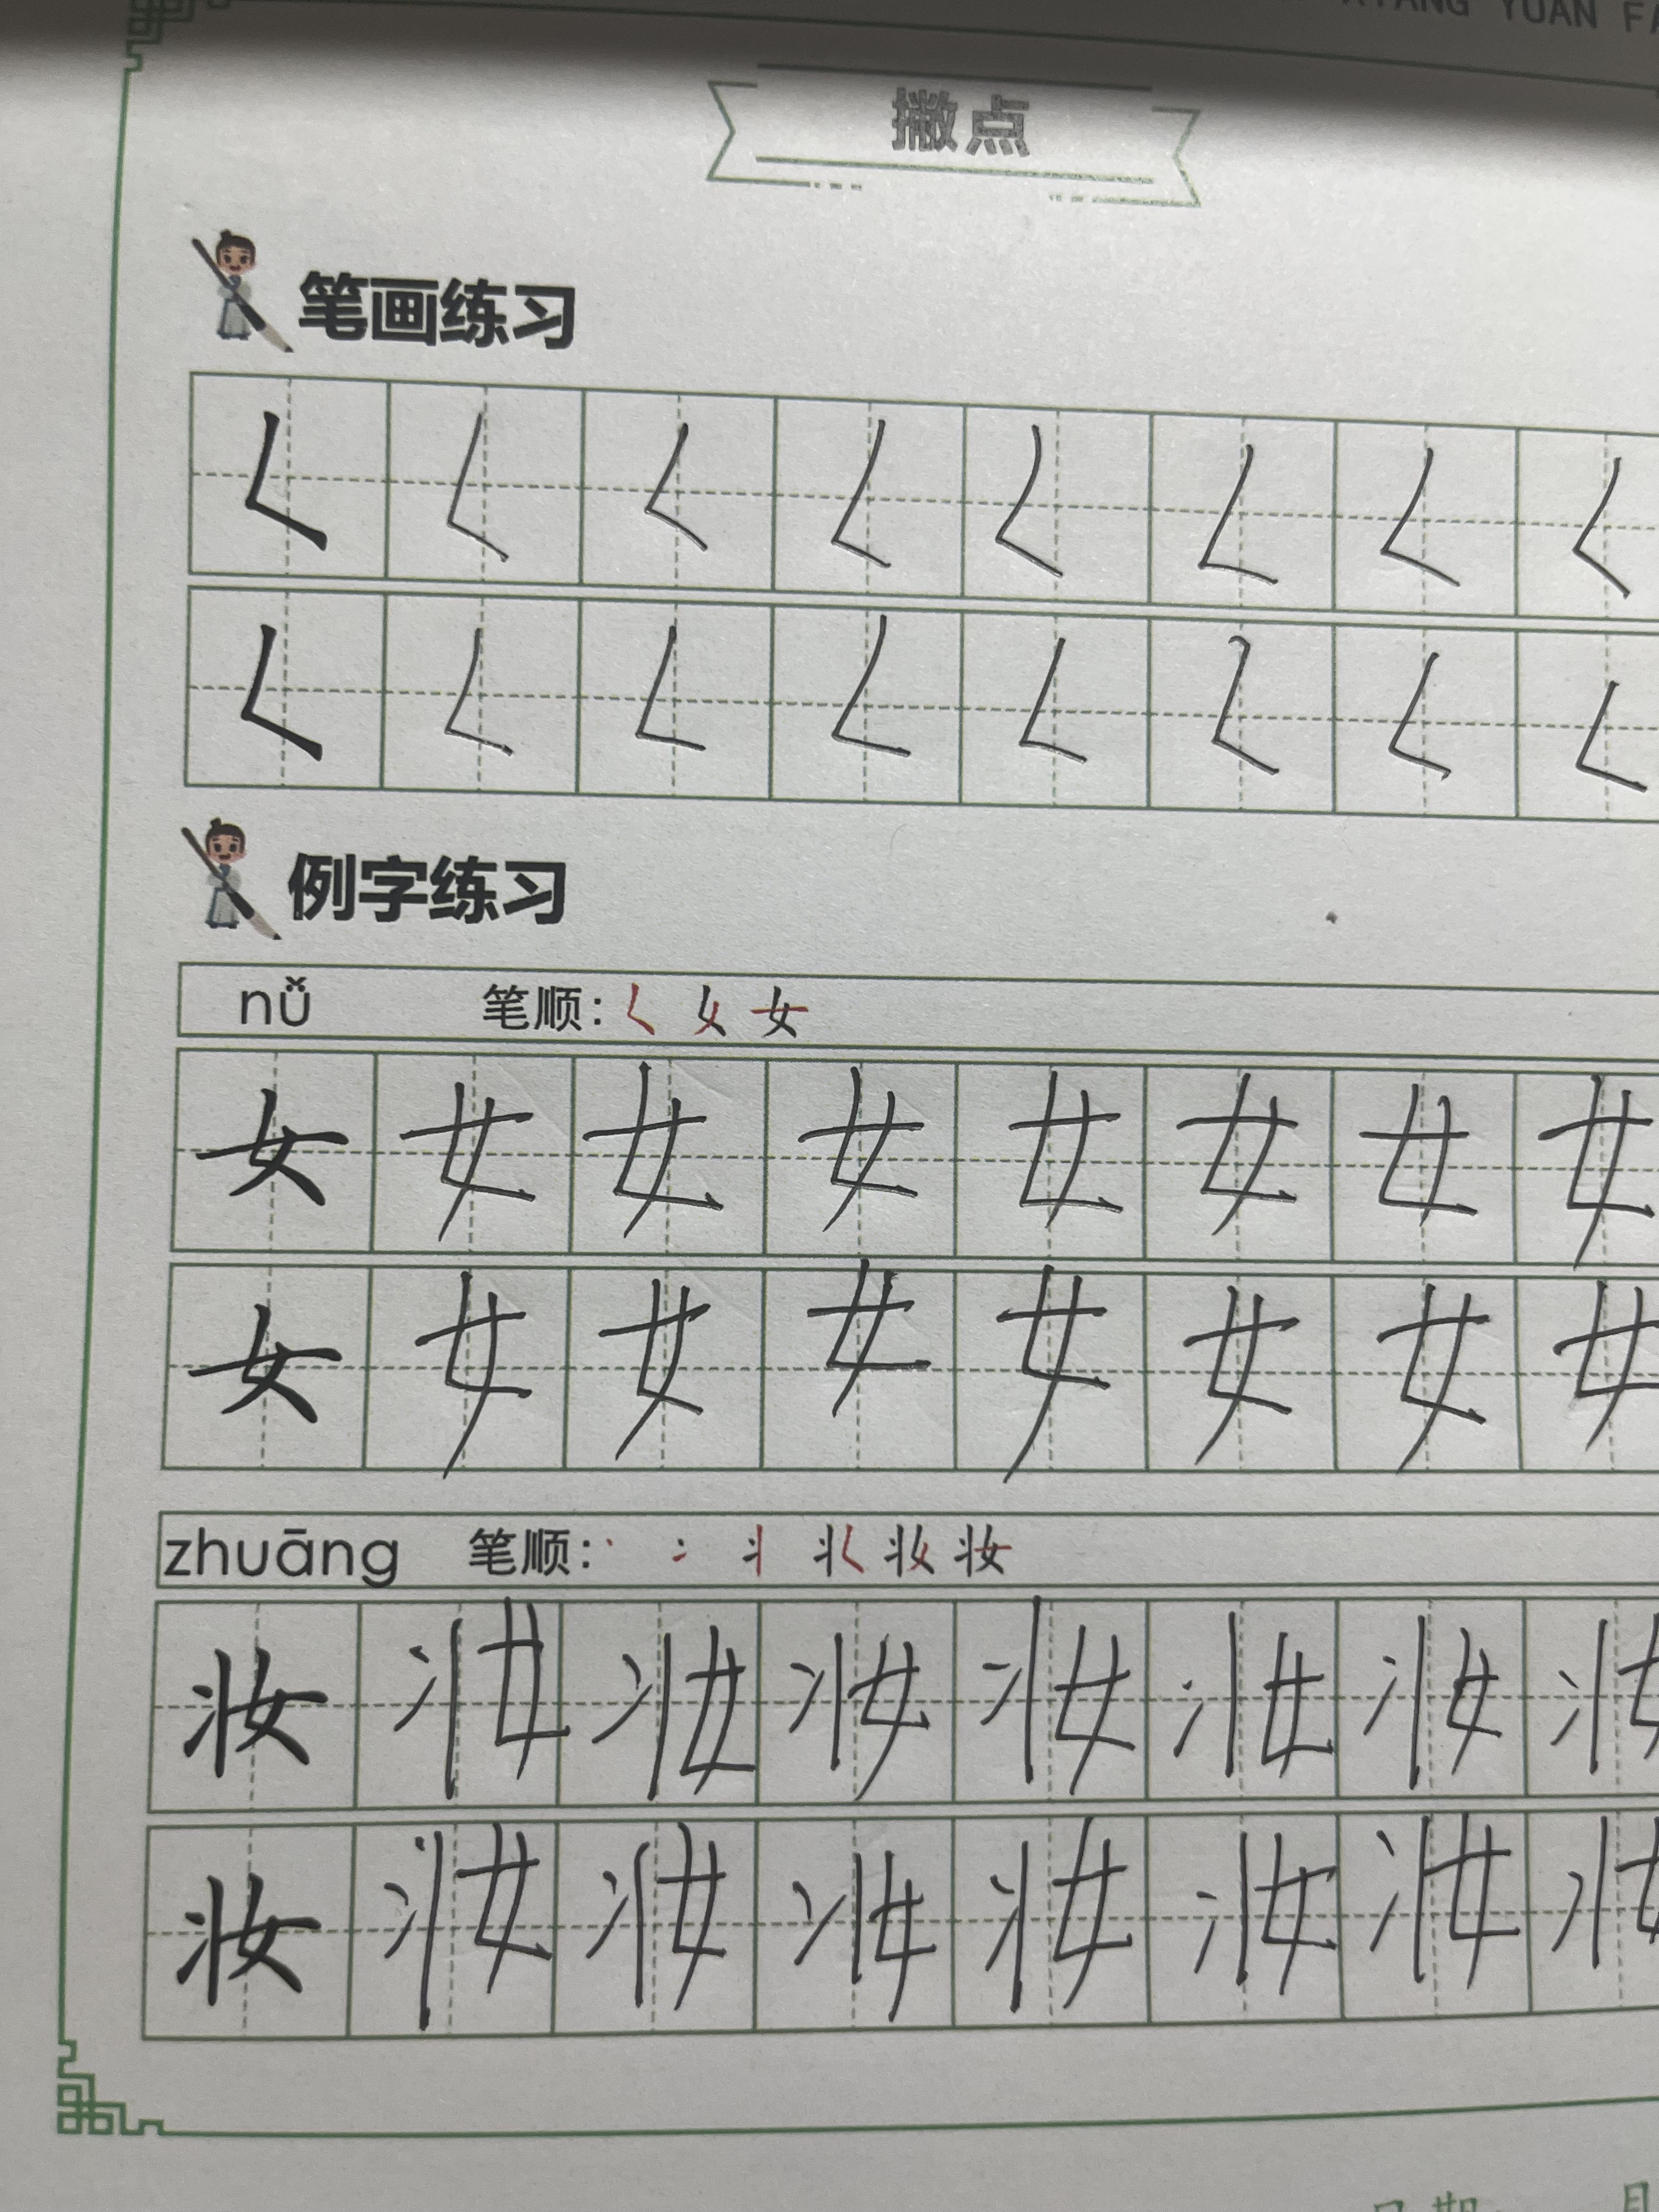 XIANG YUAN FA
撇点
笔画练习
𡿨 𡿨 𡿨 𡿨 𡿨 𡿨 𡿨 𡿨
𡿨 𡿨 𡿨 𡿨 𡿨 𡿨 𡿨 𡿨
例字练习
nǚ 笔顺: 𡿨 女
女 女 女 女 女 女 女 女
女 女 女 女 女 女 女 女
zhuāng 笔顺: 丶 冫 丬 妆
妆 妆 妆 妆 妆 妆 妆 妆
妆 妆 妆 妆 妆 妆 妆 妆
日期 月